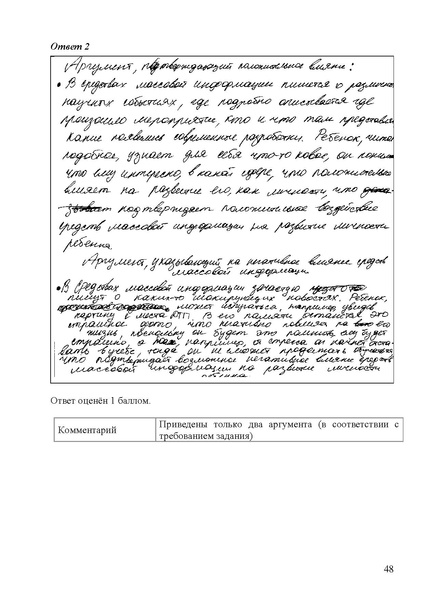 Ответ 2
Аргумент, подтверждающий положительное влияние:
• В средствах массовой информации пишется о различных
научных событиях, где подробно описывается где
произошло мероприятие, кто и что там представил
какие появились современные разработки. Ребенок, читая
подобное, узнает для себя что-то новое, он понимает
что ему интересно, в какой сфере, что положительно
влияет на развитие его, как личности, что
подтверждает положительное воздействие
средств массовой информации на развитие личности
ребенка.
Аргумент, указывающий на негативное влияние средств
массовой информации
• В средствах массовой информации зачастую
пишут о каких-то шокирующих новостях. Ребенок,
может испугаться, например увидев
картину с места ДТП. В его памяти останется это
страшное фото, что негативно повлияет на его
жизнь, поскольку он будет это помнить, ему будет
страшно, а например, от стресса он начнет отста-
вать в учебе, тогда он не сможет продолжать
что подтверждает возможное негативное влияние средств
массовой информации на развитие личности
ребенка
Ответ оценён 1 баллом.
Комментарий
Приведены только два аргумента (в соответствии с
требованием задания)
48